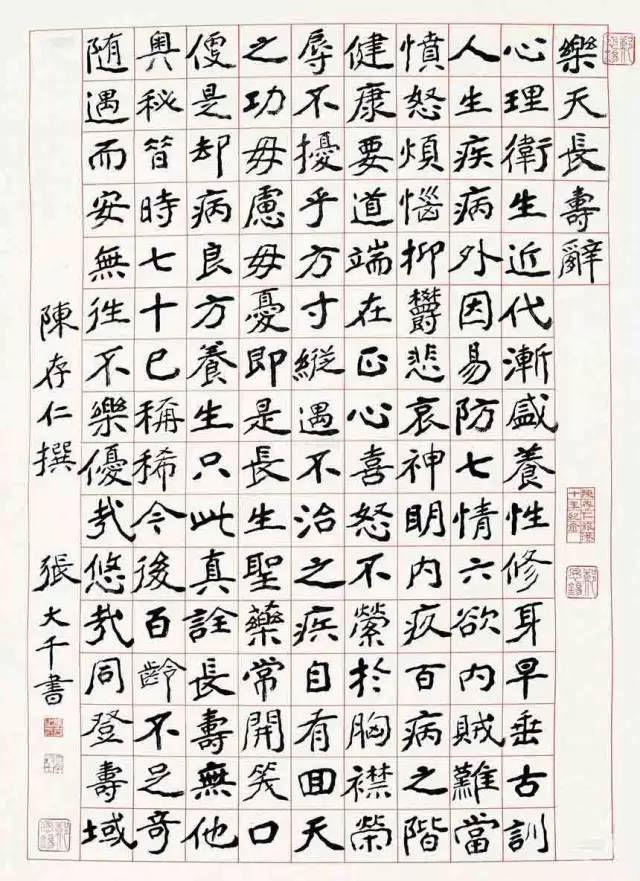 樂天長壽辭
心理衛生近代漸盛養性修身早垂古訓
人生疾病外因易防七情六欲内賊難當
憤怒煩惱抑欝悲哀神明内疚百病之階
健康要道端在正心喜怒不縈於胸襟榮
辱不擾乎方寸縱遇不治之疾自有回天
之功毋慮毋憂即是長生聖藥常開笑口
便是却病良方養生只此真詮長壽無他
奥秘昔時七十已稱稀今後百齡不足奇
随遇而安無往不樂優哉悠哉同登壽域
陳存仁撰 張大千書